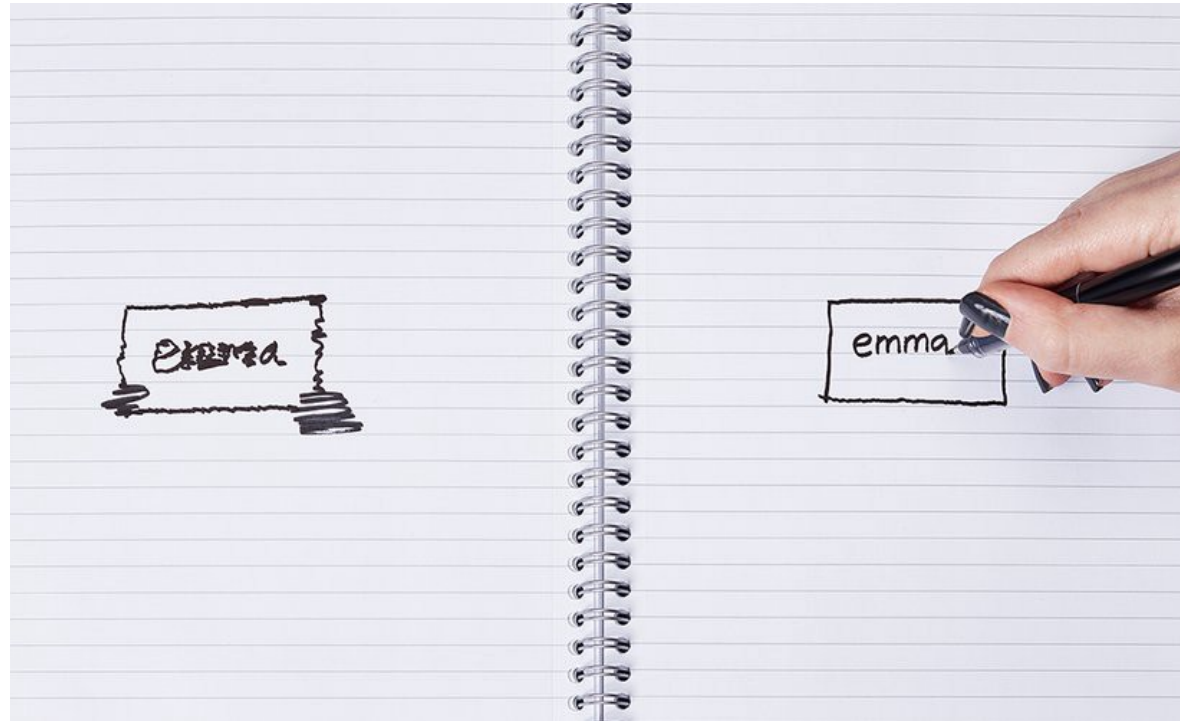 emma
emma